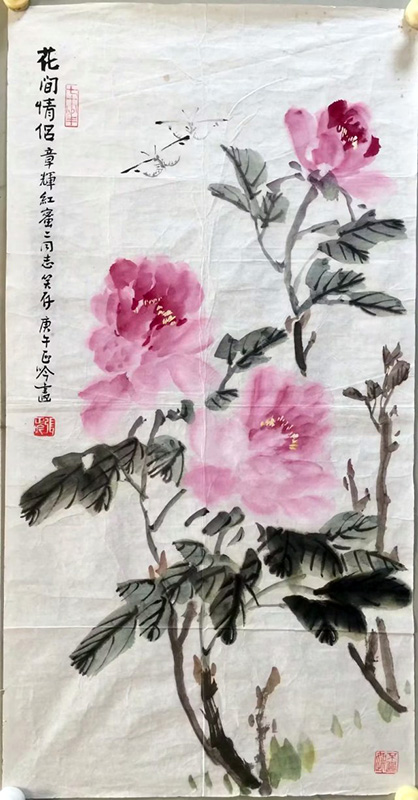 花间情侣 章輝紅蜜二同志笑存 庚午正吟画